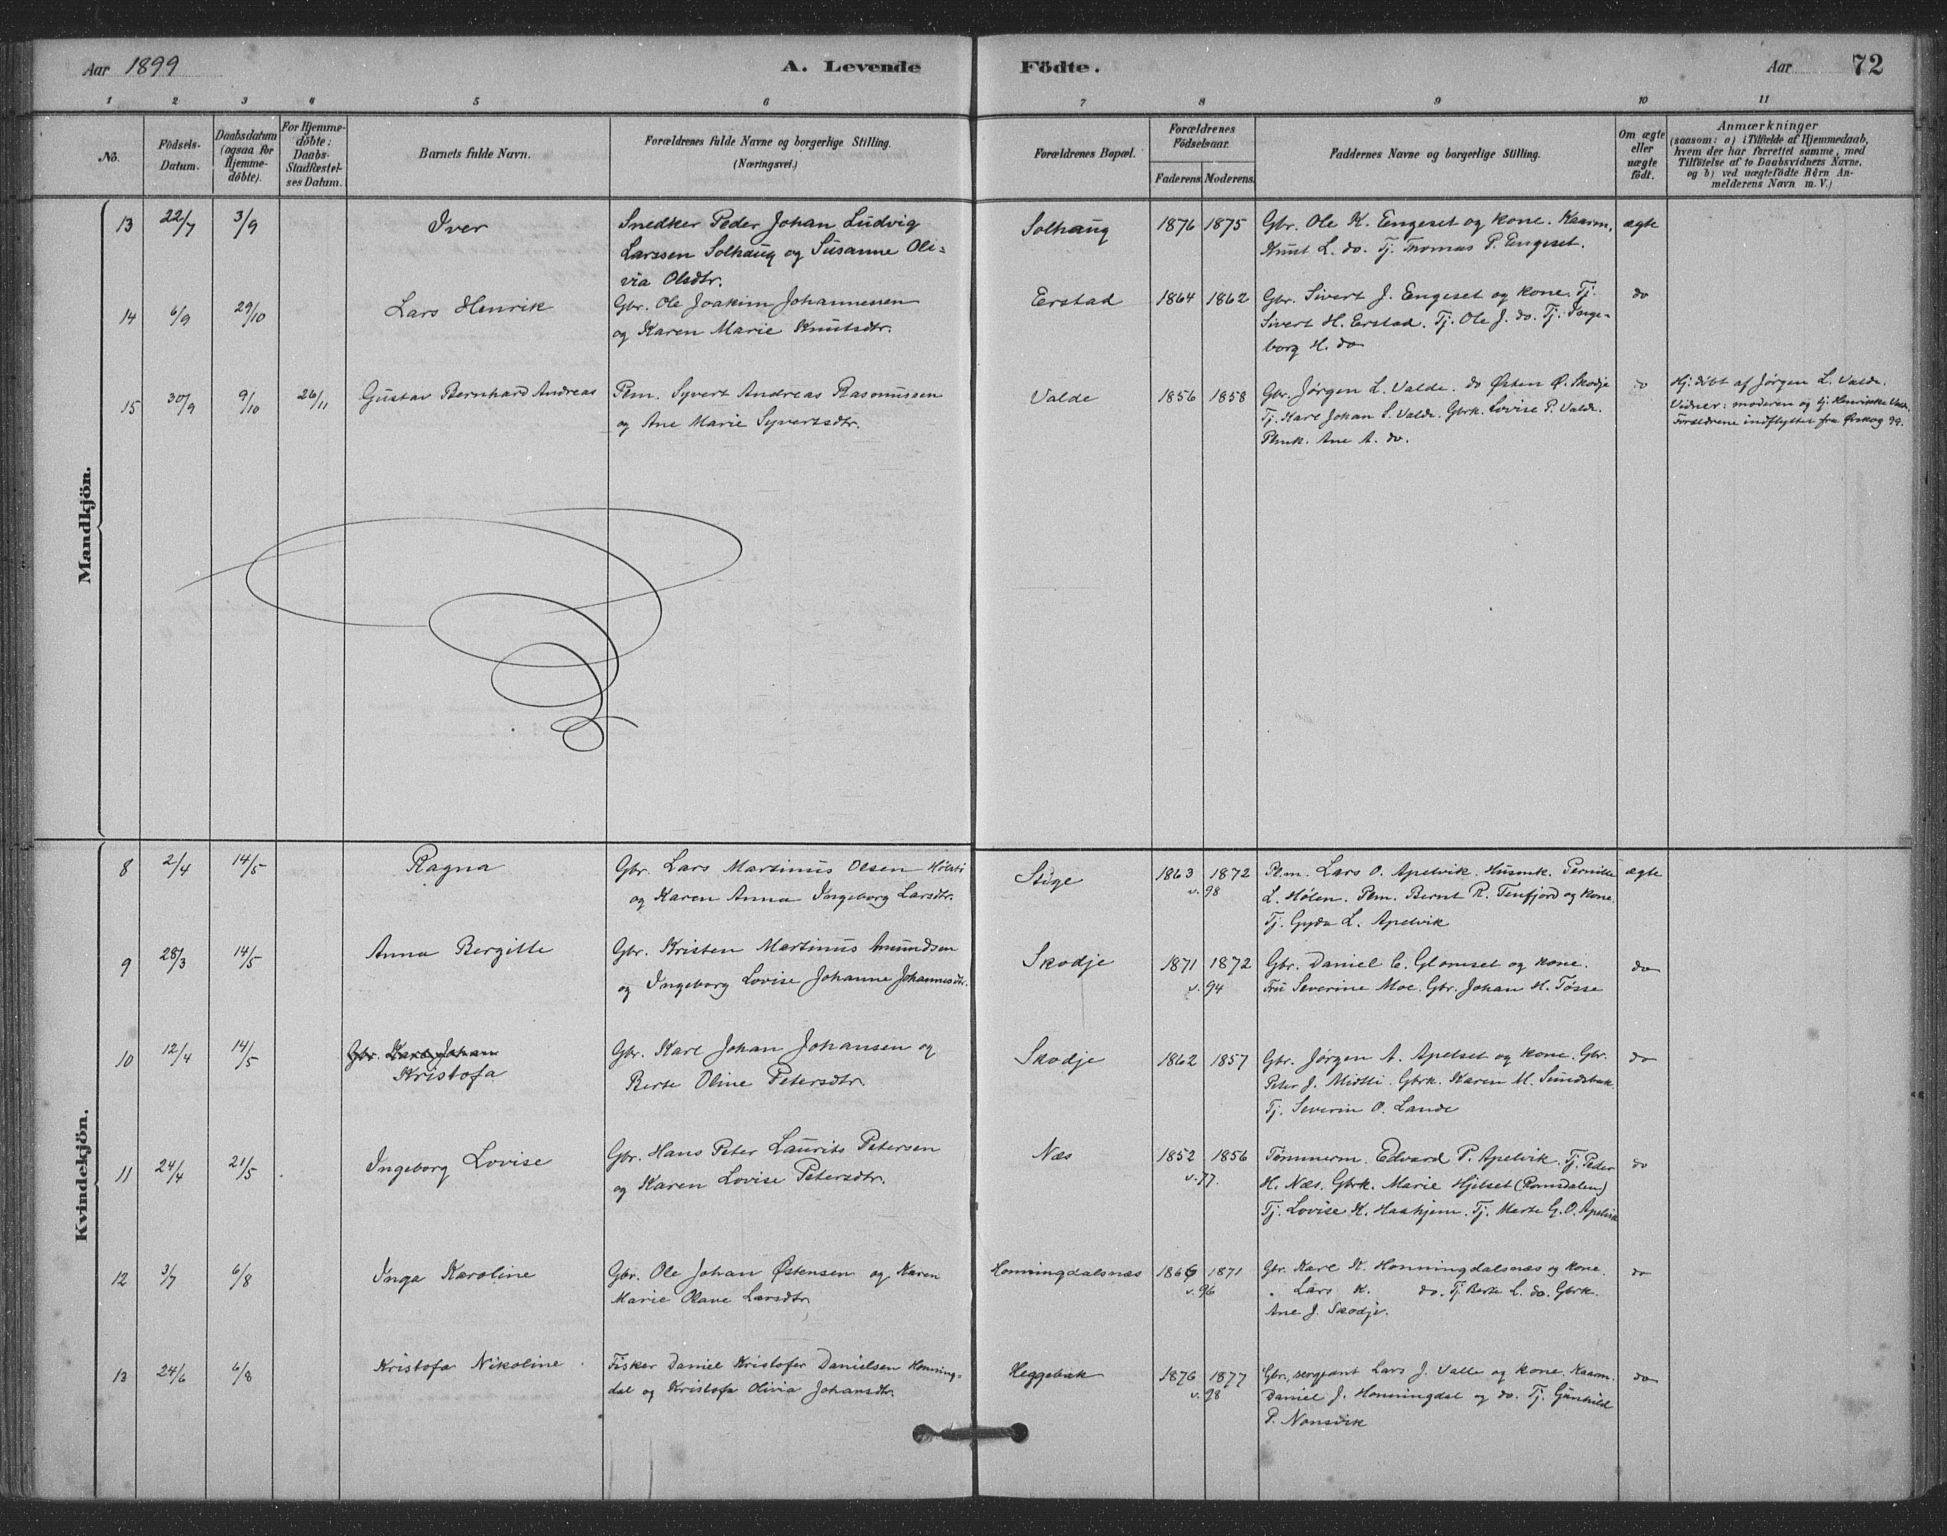 Aar 1899 A. Levende Födte. Aar 72
1 2 3 4 5 6 7 8 9 10 11
No. Födsels-Datum. Daabsdatum (ogsaa for Hjemme-döbte). For Hjemme-döbte: Daabs-Stadfæstel-ses Datum. Barnets fulde Navn. Forældrenes fulde Navne og borgerlige Stilling. (Næringsvei.) Forældrenes Bopæl. Forældrenes Födselsaar. Faderens Moderens. Faddernes Navne og borgerlige Stilling. Om ægte eller uægte födt. Anmærkninger
(saasom: a) i Tilfælde af Hjemmedaab,
hvem der har forrettet samme, med
Tilföielse af to Daabsvidners Navne,
og b) ved uægtefödte Börn An-
melderens Navn m. V.)
Mandkjön.
13 22/7 3/9 Iver Snedker Peder Johan Ludvig Solhaug 1876 1875 Gbr. Ole K. Engeset og kone. Kaarm. ægte
Larssen Solhaug og Susanne Oli- Knut L. do. Tj. Thomas P. Engeset.
via Olsdtr.
14 6/9 29/10 Lars Henrik Gbr. Ole Joakim Johannessen Erstad 1864 1862 Gbr. Sivert J. Engeset og kone. Tj. do
og Karen Marie Knutsdtr. Sivert H. Erstad. Tj. Ole J. do. Tj. Inge-
borg H. do
15 30/9 9/10 26/11 Gustav Bernhard Andreas Pem. Syvert Andreas Rasmussen Valde 1856 1858 Gbr. Jørgen L. Valde. do Østen Ø. Skodje do Hj. døbt af Jørgen L. Valde.
og Ane Marie Syvertsdtr. Tj. Karl Johan S. Valde. Gbrk. Lovise P. Valde. Vidner: moderen og tj. Henrikke Valde.
Ane A. do. Forældrene indflyttet fra Ørskog 99.
Kvindekjön.
8 2/4 14/5 Ragna Gbr. Lars Martinus Olsen Stige 1863 1872 Pem. Lars O. Apelvik. Husmk. Pernille ægte
og Karen Anna Ingeborg Larsdtr. v. 98 L. Hølen. Pem. Bernt R. Tenfjord og kone.
Tj. Gyda L. Apelvik
9 28/3 14/5 Anna Bergitte Gbr. Kristen Martinus Amundsen Skodje 1871 1872 Gbr. Daniel C. Glomset og kone. do
og Ingeborg Lovise Johanne Johannesdtr. v. 94 Fru Severine Moe. Gbr. Johan H. Tøsse
10 12/4 14/5 Gbr. Karl Johan Gbr. Karl Johan Johansen og Skodje 1862 1857 Gbr. Jørgen A. Apelset og kone. Gbr. do
Kristofa Berte Oline Petersdtr. Peter J. Midtli. Gbrk. Karen M. Sundsbak.
Tj. Severin O. Lande
11 24/4 21/5 Ingeborg Lovise Gbr. Hans Peter Laurits Petersen Næs 1852 1856 Tømmerm. Edvard P. Apelvik. Tj. Peder do
og Karen Lovise Petersdtr. v. 77. H. Næs. Gbrk. Marie Hjelset (Romsdalen)
Tj. Lovise K. Haahjem. Tj. Marte G. O. Apelvik
12 3/7 6/8 Inga Karoline Gbr. Ole Johan Østensen og Karen Honningdalsnæs 1866 1871 Gbr. Karl K. Honningdalsnæs og kone. do
Marie Olave Larsdtr. v. 96 " Lars K. do. Tj. Berte L. do. Gbrk.
Ane J. Skodje.
13 24/6 6/8 Kristofa Nikoline Fisker Daniel Kristofer Danielsen Honning- Heggebak 1876 1877 Gbr., sergeant Lars J. Valle og kone. Kaarm. do
dal og Kristofa Olivia Johansdtr. v. 98 Daniel J. Honningdal og do. Tj. Gunhild
P. Nonsvik